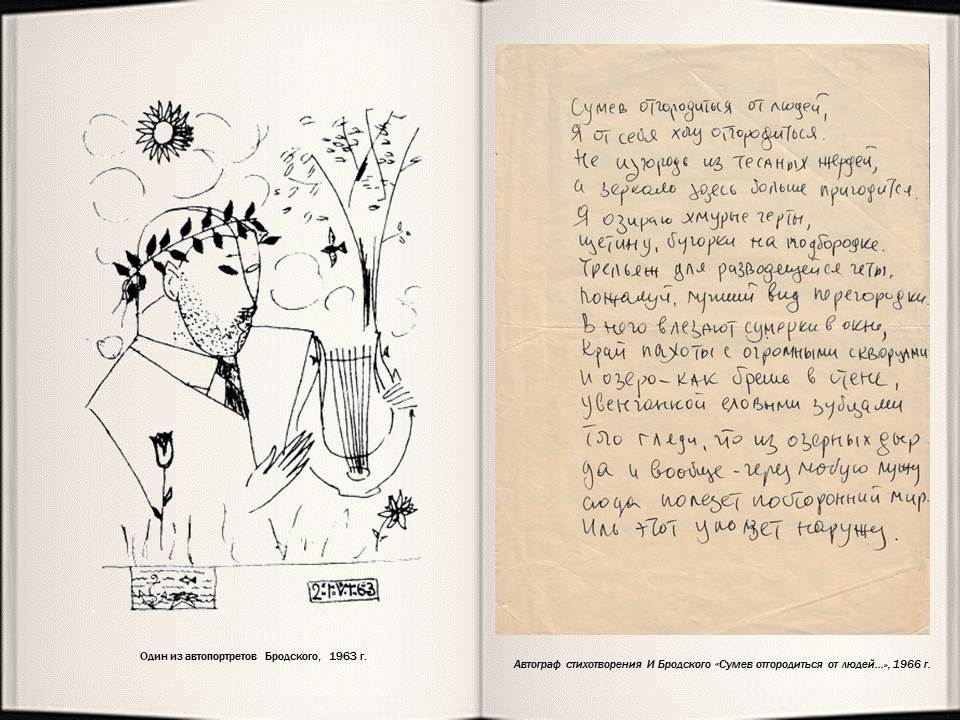 2·I·V·I·63
Один из автопортретов Бродского, 1963 г.
Сумев отгородиться от людей,
Я от себя хочу отгородиться.
Не изгородь из тесаных жердей,
а зеркало здесь больше пригодится.
Я озираю хмурые черты,
щетину, бугорки на подбородке.
Трельяж для разводящейся четы,
пожалуй, лучший вид перегородки.
В него влезают сумерки в окне,
край пахоты с огромными скворцами
и озеро – как брешь в стене,
увенчанной еловыми зубцами
Того гляди, что из озерных дыр
да и вообще – через любую лужу
сюда полезет посторонний мир.
Иль этот уползет наружу.
Автограф стихотворения И Бродского «Сумев отгородиться от людей...», 1966 г.